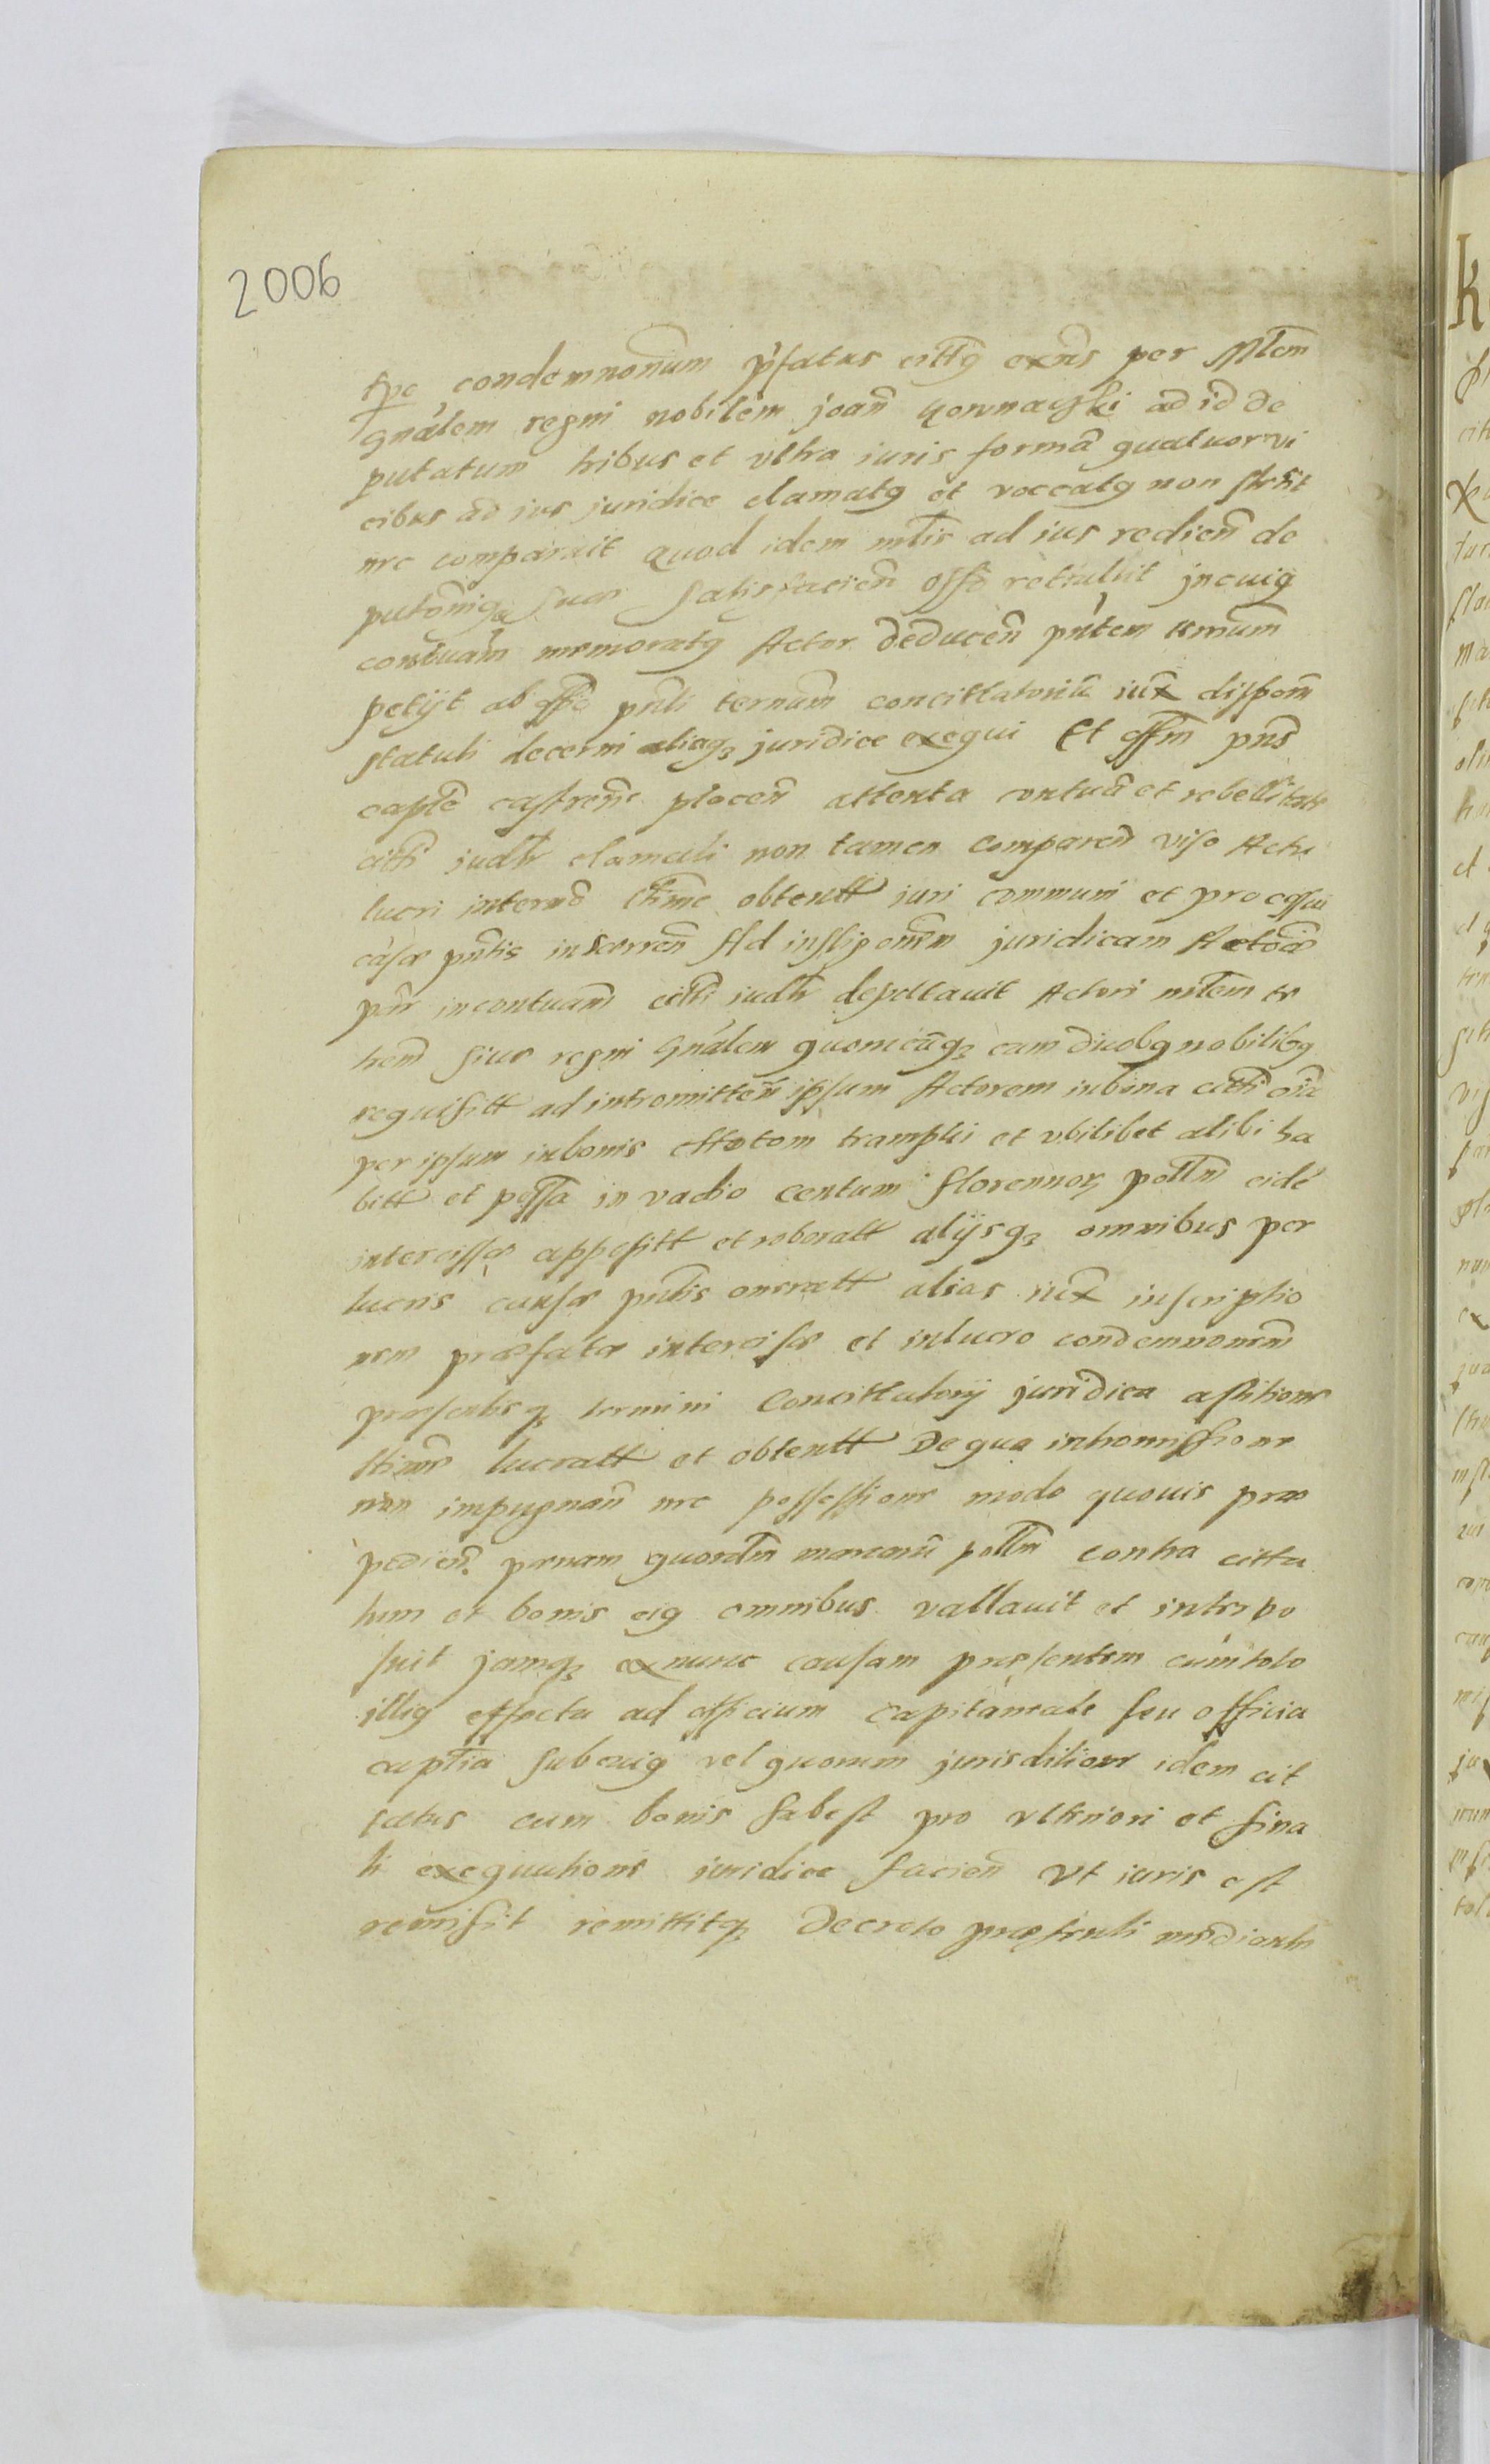 2006
condemnonum pfatus cittq exns per Mlem
gnalem regni nobilem joan ad id de
putatum tribus et vltra iuris forma quatuor vi
cibus ad ius juridice clamatq et voccatq non stetit
nec comparuit quod idem mlis ad ius redien de
satisfacien offo retullit jn cuiq
contuam memoratq Actor deducen pntem trnum
petijt ab offo pnti ternum concitlatoriu iux dispom
statuti decerni aliaq juridice exequi Et offm pns
capte castrense placen attenta contua et rebellitate
citti judtr clamati non tamen comparen viso Actu
lucri obtentt juri communi et processui
causæ pntis inhæren Ad instigonem juridicam Actoris
in contuam citti iudtr deputauit Actori mlem te
siue regni gnalem quemcuq cum duobq nobilibq
requisitt ad intromitten ipsum Actorem in bona citti oia
per ipsum in bonis et vbilibet alibi ha
bitt et possa in vadio centum florennor polln eide
intercissæ appositt et roboratt alijsq omnibus per
lucris causæ pntis onsratt alias iux inscriptio
nem præfatæ intercisæ et in lucro condemnonem
præsentisq termini Concitlatorij juridica astitione
lucratt et obtentt De qua intromissione
non impugnan nec possessione modo quouis præ
pedien pænam marcaru polln contra citta
tum et bonis eiq omnibus vallauit et interpo
suit jamq ex nunc causam præsentem cum toto
illiq effectu ad officium capitaneale seu officia
captia sub cuiq vel quorum jurisditione idem cit
tatus cum bonis subest pro vlteriori et fina
li exequutione juridice facien Vt iuris est
remisit remittitq Decreto præsenti mediante